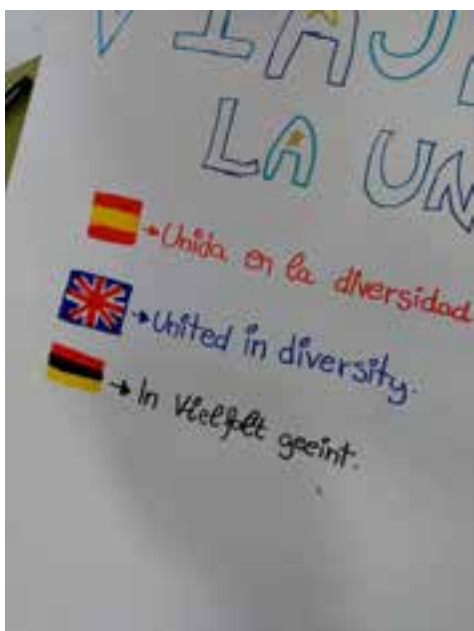 VIAJ
LA UN
Unida en la diversidad
United in diversity.
In Vielfalt geeint.